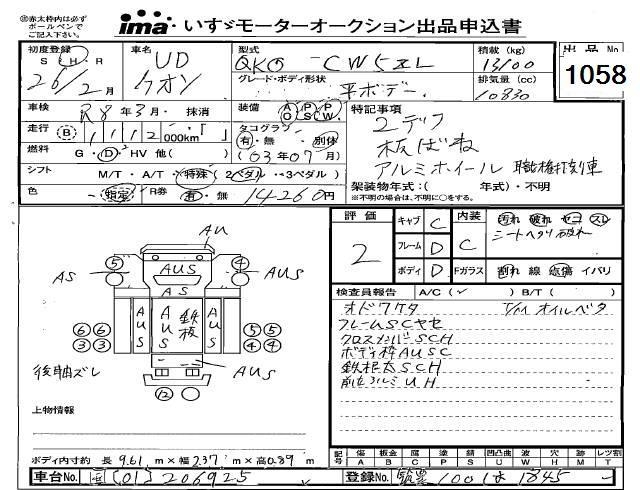 ㊟赤太枠内は必ず
ボールペンで
ご記入下さい。
ima いすゞモーターオークション出品申込書
初度登録 車名 型式 積載(kg) 出品No
S・H・R UD QKG - CW5XL 13100 1058
26/2月 クオン グレード・ボディ形状 排気量(cc)
平ボデー 10830
車検 R8年3月・抹消 装備 AO PS PW 特記事項
走行 (B) 1112 000km・「 」 タコグラフ 2デフ
有・無・別体 板ばね
燃料 G・D・HV 他( ) (03年07月) アルミホイール 職権打刻車
シフト M/T・A/T・特殊(2ペダル・3ペダル) 架装物年式:( 年式)・不明
色 指定 R券 有・無 14260円 ※不明の場合は、不明に○をする。
評価 キャブ C 内装 汚れ 破れ セコ スレ
2 フレーム D C シートヘタリ 破れ
ボディ D Fガラス 割れ 線 点傷 イバリ
AU
⑤ ④
AS AUS AUS
AS
AUS AUS 鉄板 AUS
⑥⑥ ⑤⑤
③③ ④④
後軸ズレ AUS
⑫
検査員報告 A/C(✓) B/T( )
オドワケタ T/M オイルベタ
フレームSCヤセ
クロスメンバSCH
ボディ枠AUSC
鉄根太SCH
前立アルミUH
上物情報
ボディ内寸約 長 9.61 m×幅 2.37 m×高 0.39 m
記号 傷 板金 腐 塗 凹 凹凸曲 波 穴 蒔 レツ割
A B C P S U W H M T
車台No. 国[01]206925 登録No. 筑豊100は1845